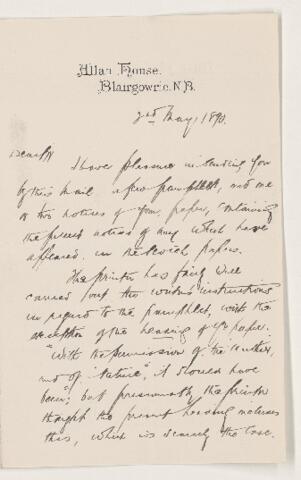 Allan House.
Blairgowrie. N.B.
2nd May, 1890.
Dear Sir
I have pleasure in sending you
by this mail a few pamphlets, and one
or two notices of your paper, containing
the press notices of any which have
appeared in the Scotch papers.
The printer has fairly well
carried out the written instructions
in regard to the pamphlet, with the
exception of the heading of yr paper.
"With the permission of the Author,
and of 'Nature'", it should have
been; but presumably the printer
thought the present heading
this, which is scarcely the case.